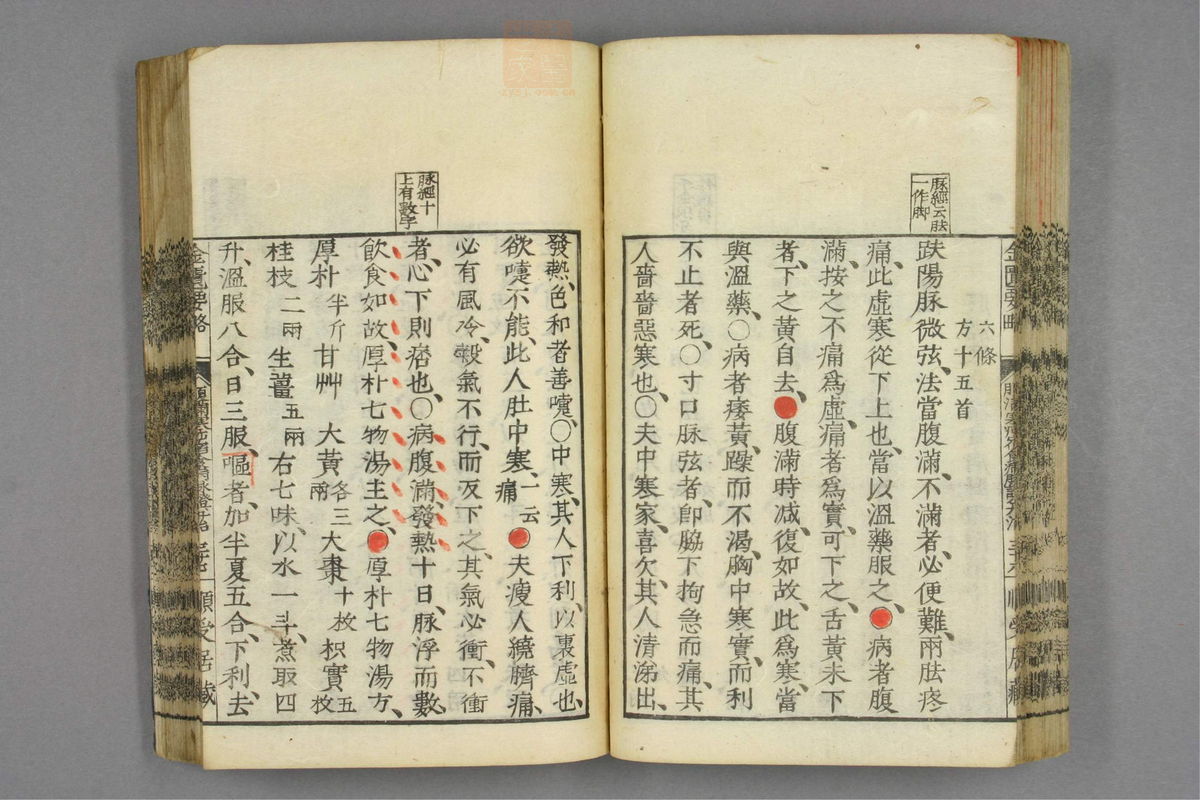 脉經云胠
一作脚
六條
方十五首
趺陽脉微弦、法當腹滿、不滿者、必便難、兩胠疼
痛、此虛寒從下上也、當以溫藥服之、●病者腹
滿、按之不痛爲虛、痛者爲實、可下之、舌黃未下
者、下之黃自去、●腹滿時减、復如故、此爲寒、當
與溫藥、○病者痿黃、躁而不渴、胸中寒實、而利
不止者、死、○寸口脉弦者、卽脇下拘急而痛、其
人嗇嗇惡寒也、○夫中寒家、喜欠、其人清涕出、
脉經十
上有數字
發熱、色和者、善嚏、○中寒、其人下利、以裏虛也、
欲嚏不能、此人肚中寒、一云痛●夫瘦人繞臍痛、
必有風冷、穀氣不行、而反下之、其氣必衝、不衝
者、心下則痞也、○病腹滿、發熱十日、脉浮而數、
飲食如故、厚朴七物湯主之、●厚朴七物湯方、
厚朴半斤 甘艸 大黃各三兩 大棗十枚 枳實五枚
桂枝二兩 生薑五兩 右七味、以水一斗、煮取四
升、溫服八合、日三服、嘔者、加半夏五合、下利、去
金匱要略
順受居藏
金匱要略